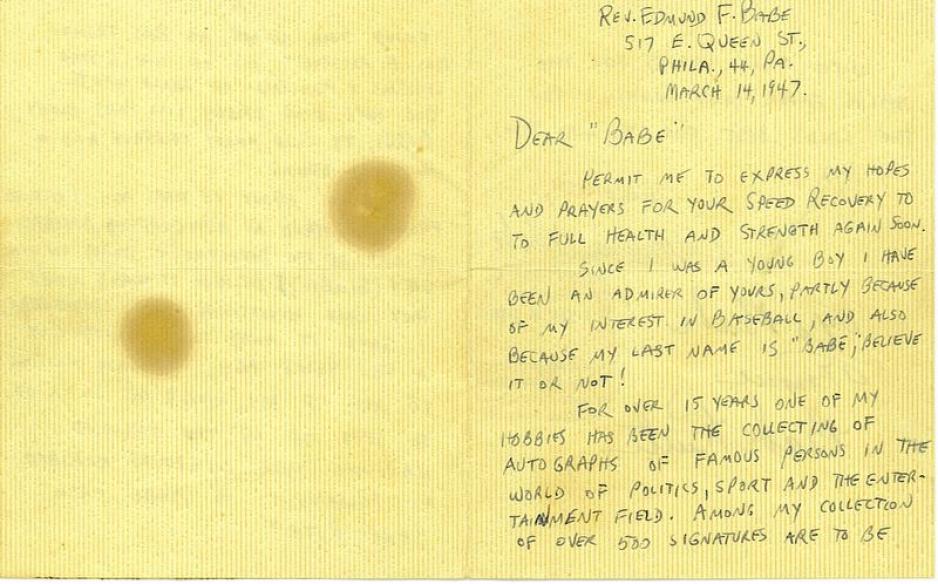 REV. EDMUND F. BABE
517 E. QUEEN ST.,
PHILA., 44, PA.
MARCH 14, 1947.
DEAR "BABE"
PERMIT ME TO EXPRESS MY HOPES
AND PRAYERS FOR YOUR SPEED RECOVERY TO
TO FULL HEALTH AND STRENGTH AGAIN SOON.
SINCE I WAS A YOUNG BOY I HAVE
BEEN AN ADMIRER OF YOURS, PARTLY BECAUSE
OF MY INTEREST IN BASEBALL, AND ALSO
BECAUSE MY LAST NAME IS "BABE", BELIEVE
IT OR NOT!
FOR OVER 15 YEARS ONE OF MY
HOBBIES HAS BEEN THE COLLECTING OF
AUTOGRAPHS OF FAMOUS PERSONS IN THE
WORLD OF POLITICS, SPORT AND THE ENTER-
TAINMENT FIELD. AMONG MY COLLECTION
OF OVER 500 SIGNATURES ARE TO BE